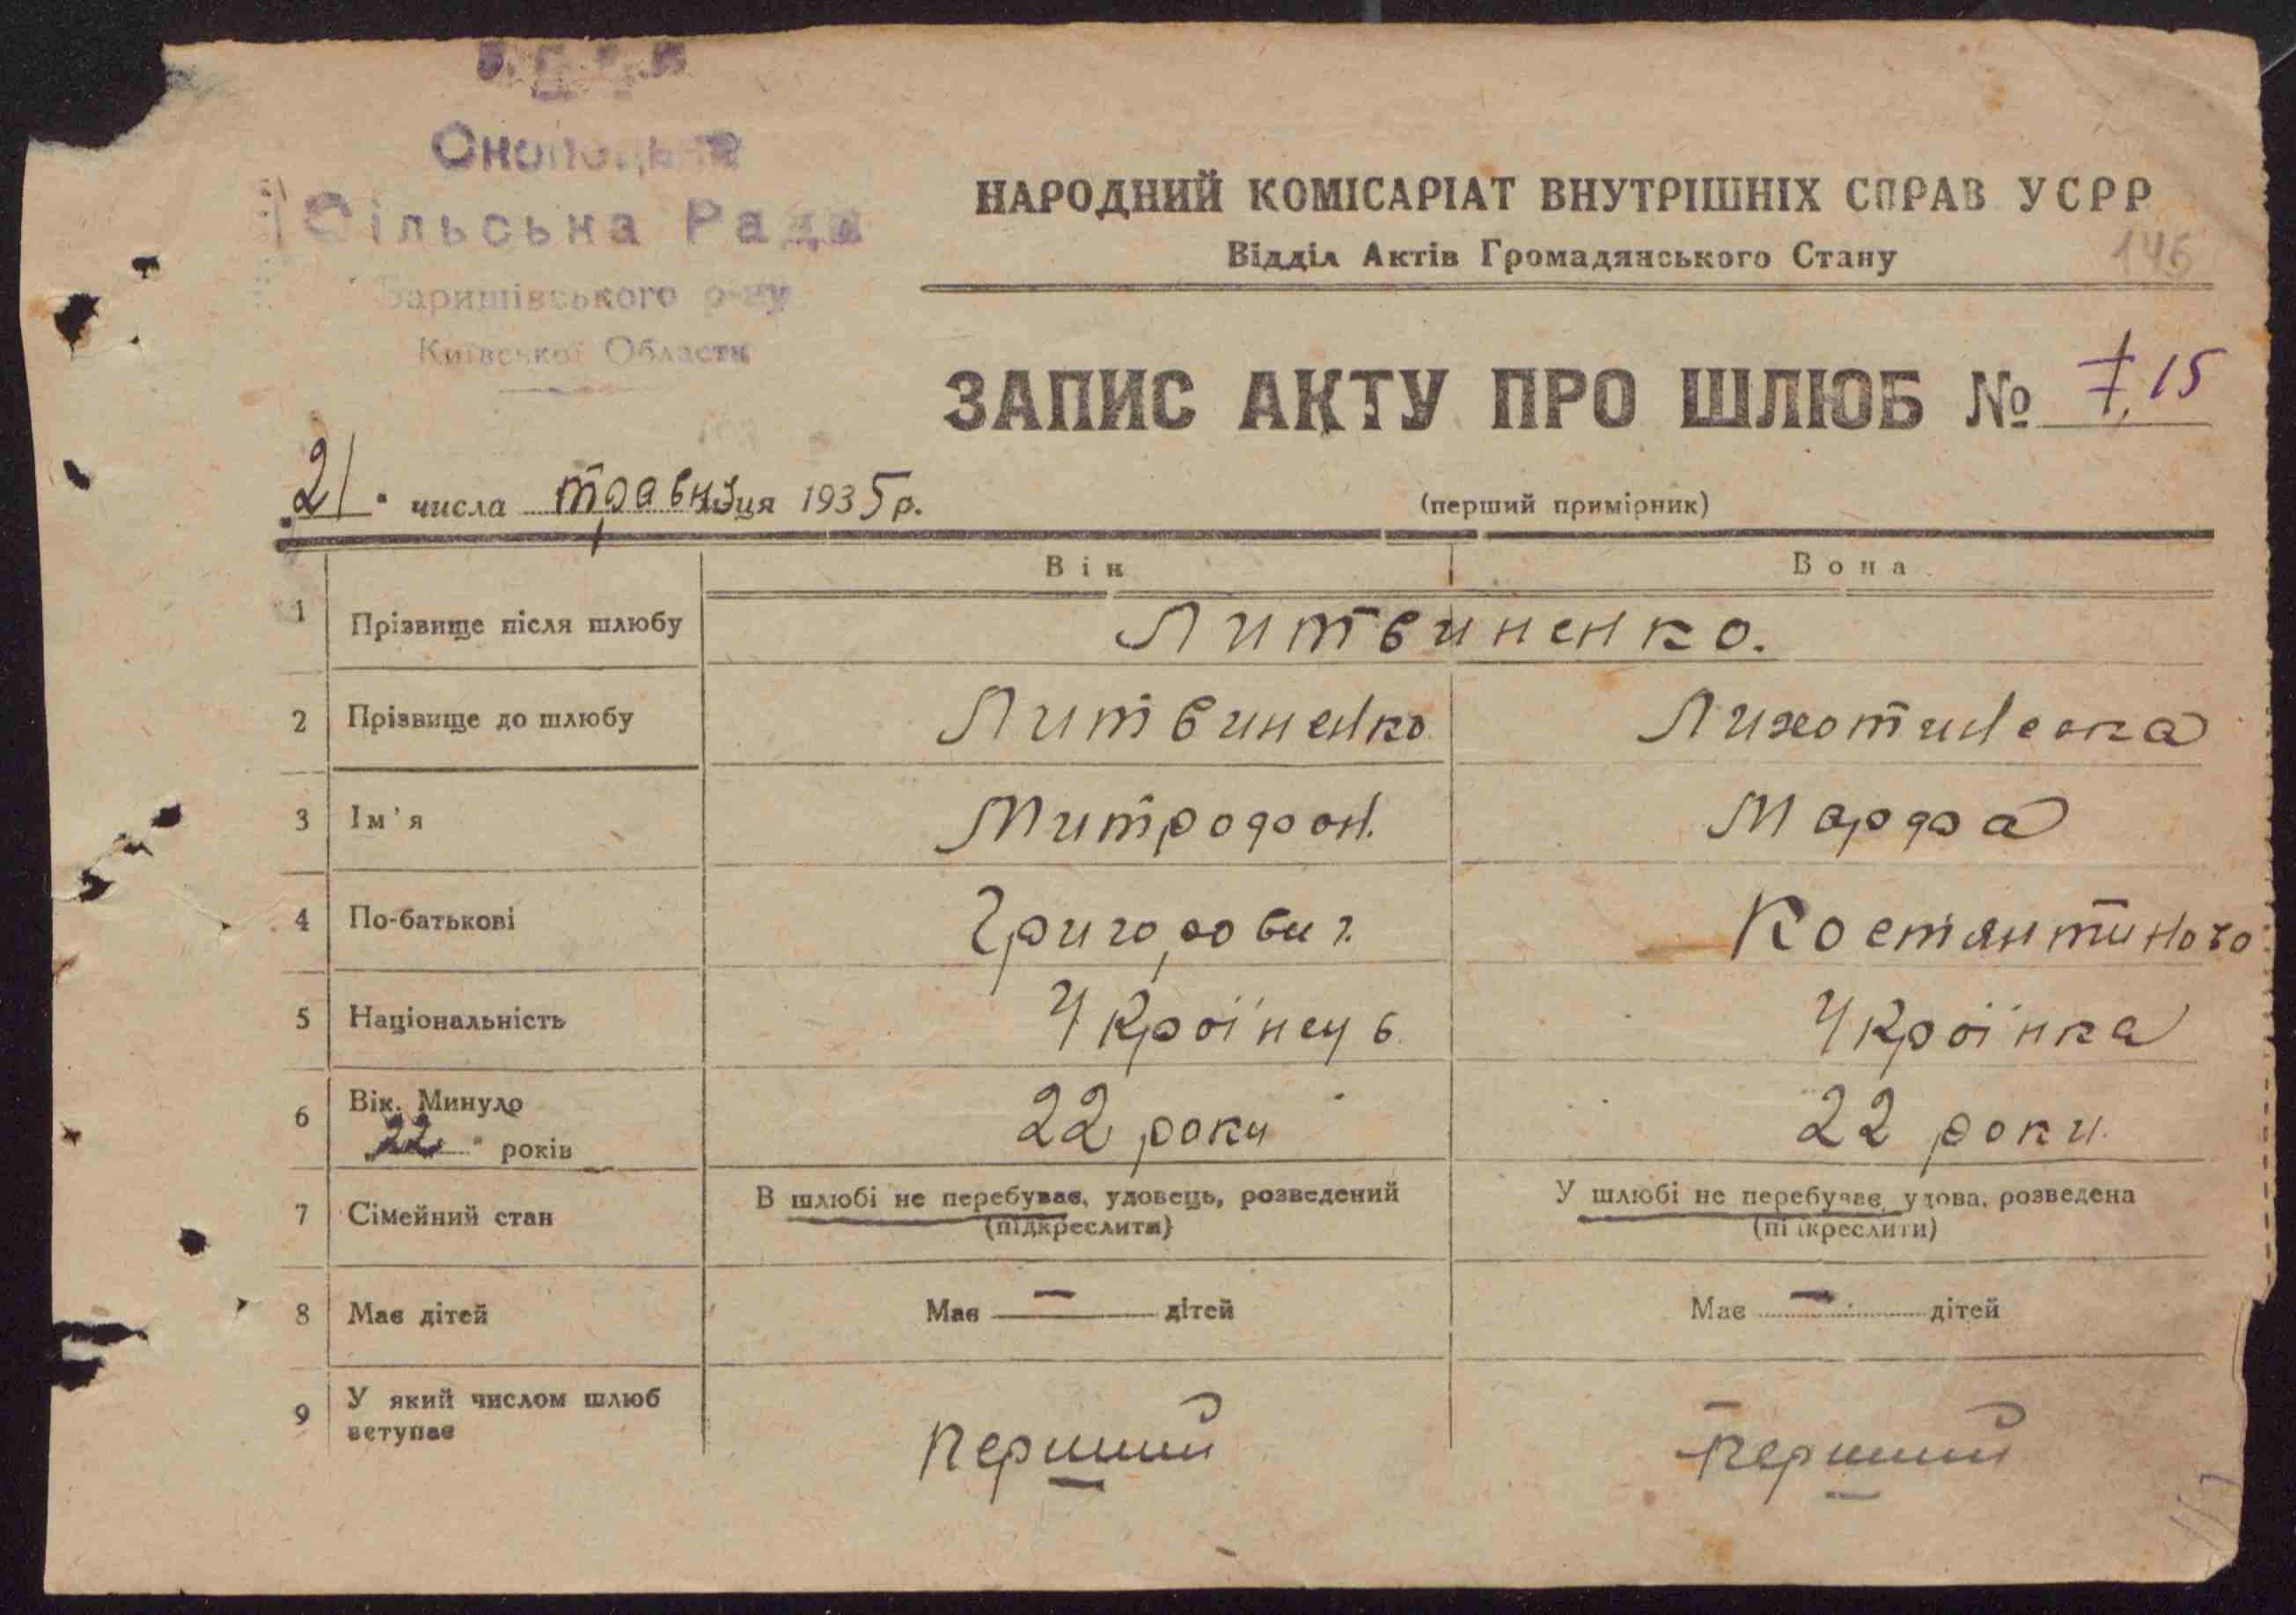 Сільська Рада
Баришівського р-ну
Київської Области
НАРОДНИЙ КОМІСАРІАТ ВНУТРІШНІХ СПРАВ УСРР
Відділ Актів Громадянського Стану
146
ЗАПИС АКТУ ПРО ШЛЮБ № 7, 15
21 числа травня місяця 1935 р.
(перший примірник)
Він Вона
1 Прізвище після шлюбу Литвиненко.
2 Прізвище до шлюбу Литвиненко Лихотинська
3 Ім'я Митрофан. Марфа
4 По-батькові Григорович. Костянтиного
5 Національність Українець Українка
6 Вік. Минуло 22 роки 22 роки.
22 років
7 Сімейний стан В шлюбі не перебуває, удовець, розведений У шлюбі не перебуває, удова, розведена
(підкреслити) (підкреслити)
8 Має дітей Має — дітей Має — дітей
9 У який числом шлюб
вступає Перший Перший